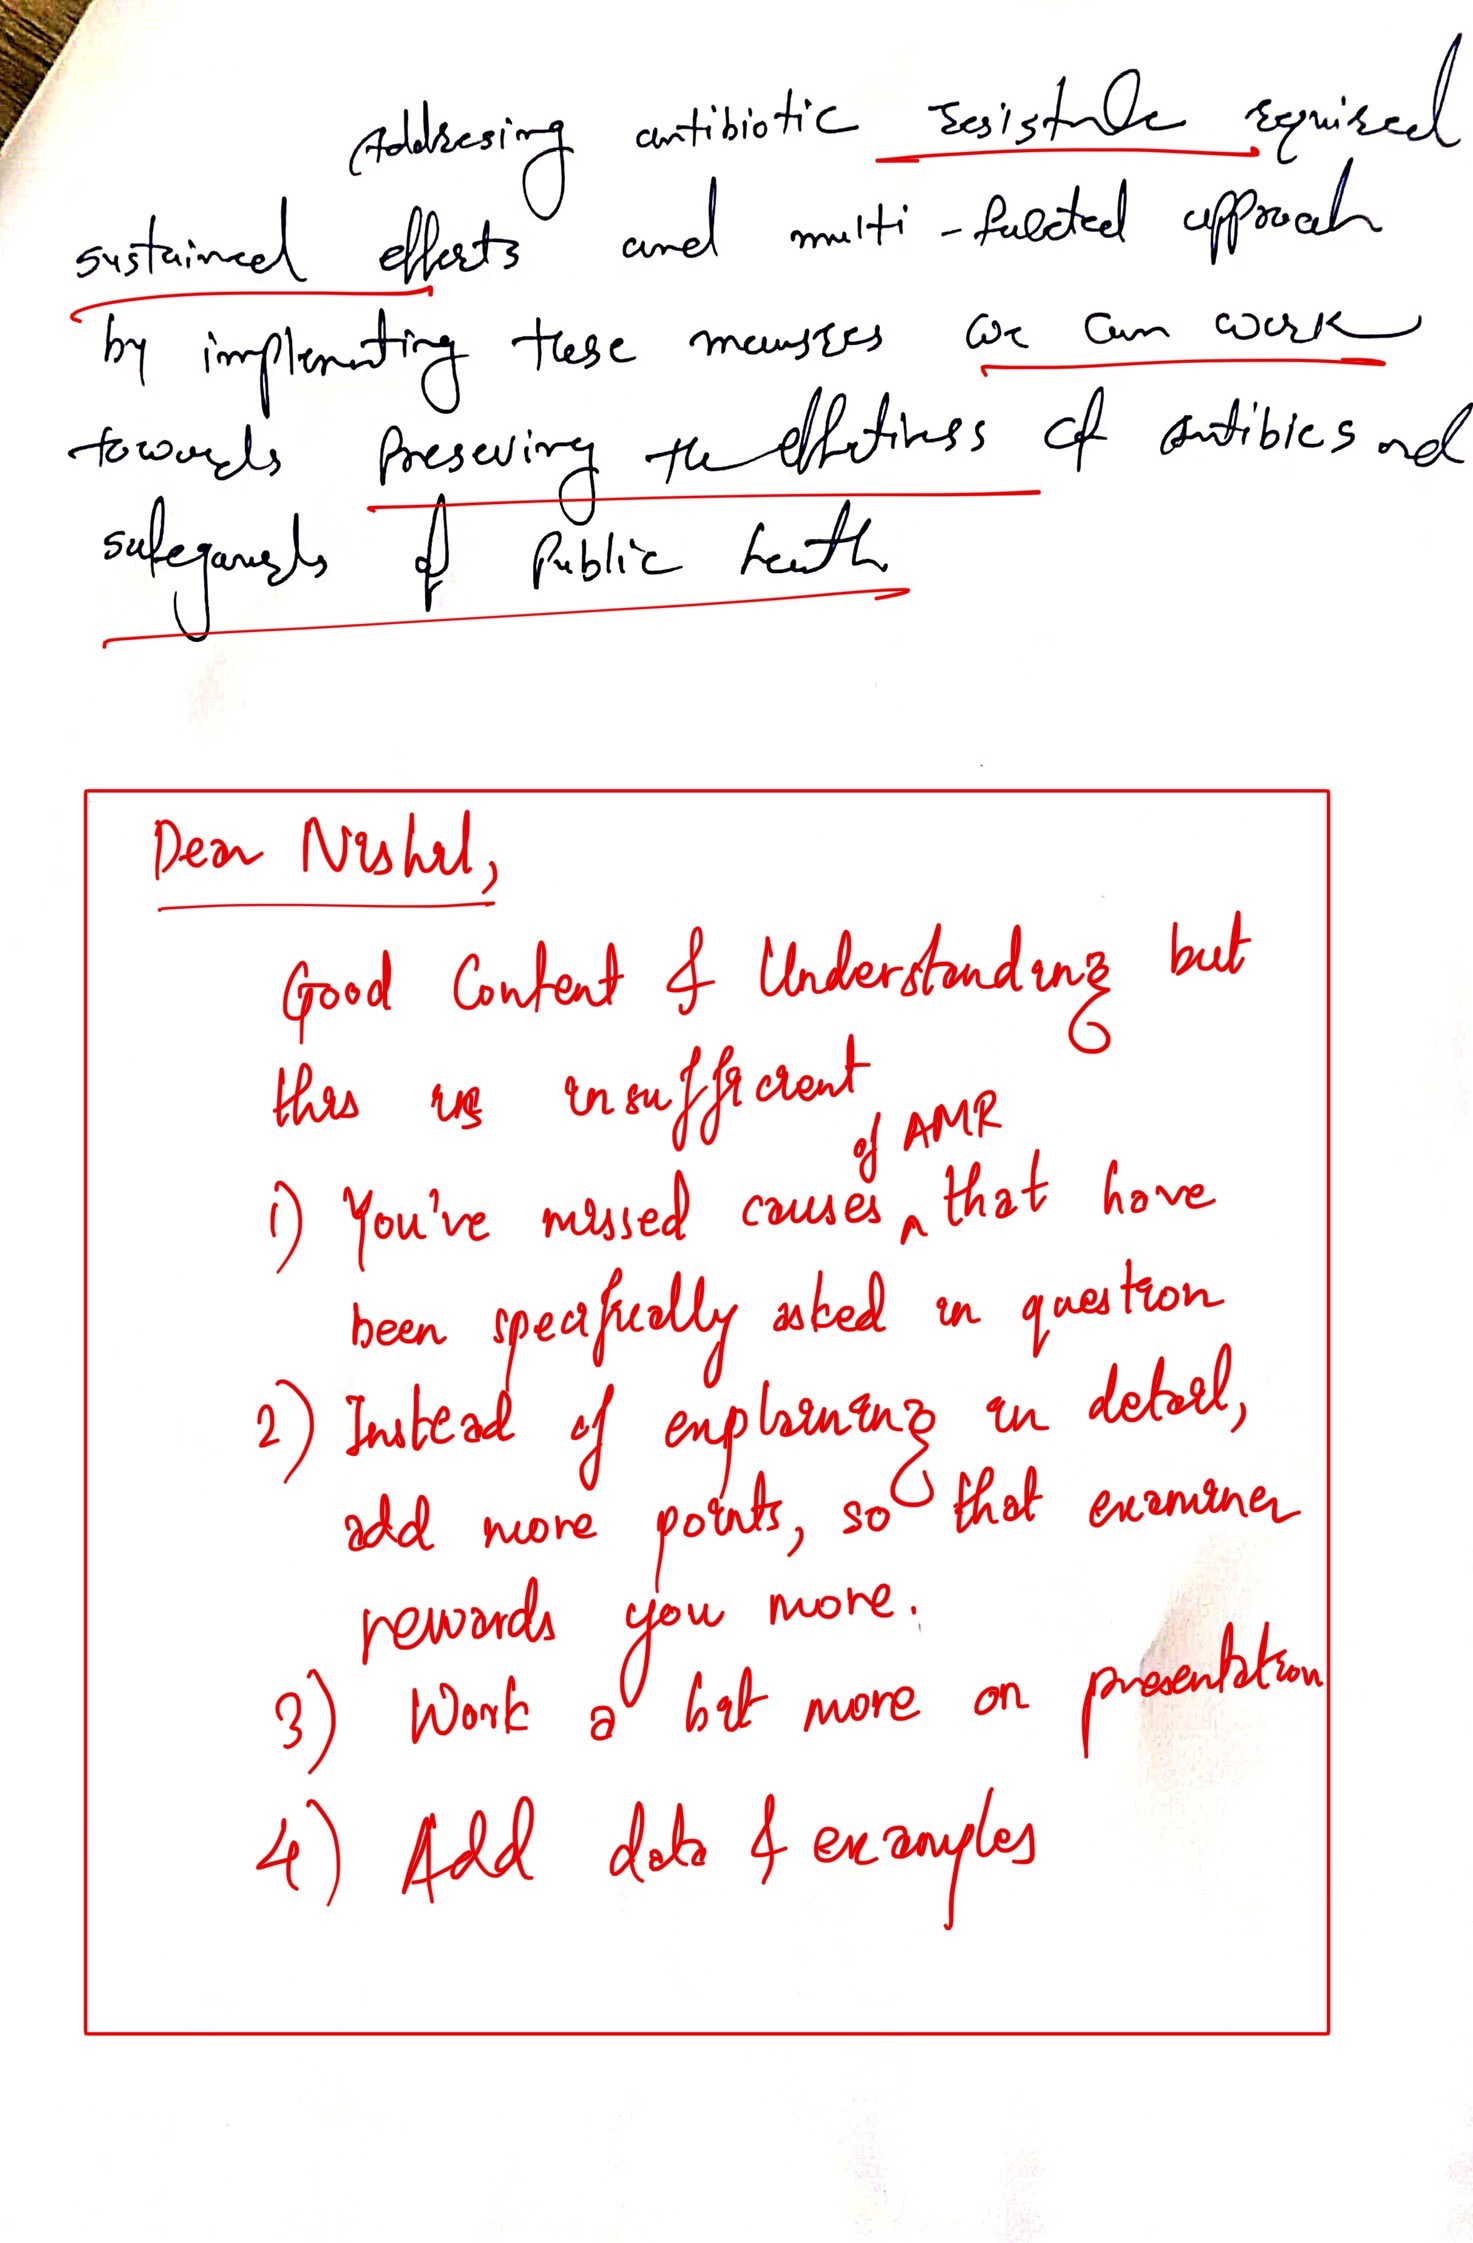 Addresing antibiotic resistance required
sustained efforts and multi-faceted approach
by implementing these measures we can work
towards preserving the effectiveness of antibics and
safeguards of Public health
Dear Nishil,
Good Content & Understanding but
this is insufficient
of AMR
1) You've missed causes ^ that have
been specifically asked in question
2) Instead of explaining in detail,
add more points, so that examiner
rewards you more.
3) Work a bit more on presentation
4) Add data & examples